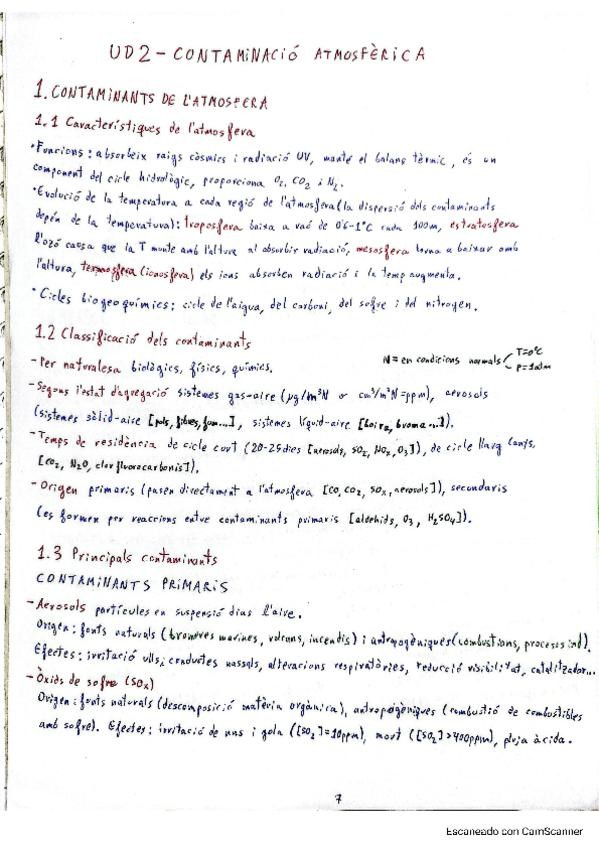 UD2 - CONTAMINACIÓ ATMOSFÈRICA
1. CONTAMINANTS DE L'ATMOSFERA
1.1 Característiques de l'atmosfera
· Funcions: absorbeix raigs còsmics i radiació UV, manté el balanç tèrmic, és un
component del cicle hidrològic, proporciona O₂, CO₂ i N₂.
· Evolució de la temperatura a cada regió de l'atmosfera (la dispersió dels contaminants
depén de la temperatura): troposfera baixa a raó de 0'6-1°C cada 100m, estratosfera
l'ozó causa que la T munte amb l'altura al absorbir radiació, mesosfera torna a baixar amb
l'altura, termosfera (ionosfera) els ions absorben radiació i la temp augmenta.
· Cicles biogeoquímics: cicle de l'aigua, del carboni, del sofre i del nitrogen.
1.2 Classificació dels contaminants
- Per naturalesa biològics, físics, químics.
N = en condicions normals T=0°C
P=1atm
- Segons l'estat d'agregació sistemes gas-aire (μg/m³N or cm³/m³N=ppm), aerosols
(sistemes sòlid-aire [pols, fibres, fum...], sistemes líquid-aire [boira, broma...]).
- Temps de residència de cicle curt (20-25dies [aerosols, SO₂, NO₂, O₃]), de cicle llarg (anys,
[CO₂, N₂O, clorfluorocarbonis]).
- Origen primaris (pasen directament a l'atmosfera [CO, CO₂, SOx, aerosols]), secundaris
(es formen per reaccions entre contaminants primaris [aldehids, O₃, H₂SO₄]).
1.3 Principals contaminants
CONTAMINANTS PRIMARIS
- Aerosols partícules en suspensió dins l'aire.
Origen: fonts naturals (bromeres marines, volcans, incendis) i antropogèniques (combustions, procesos ind).
Efectes: irritació ulls, conductes nassals, alteracions respiratòries, reducció visibilitat, catalitzador...
- Òxids de sofre (SOx)
Origen: fonts naturals (descomposició matèria orgànica), antropogèniques (combustió de combustibles
amb sofre). Efectes: irritació de uns i gola ([SO₂]=10ppm), mort ([SO₂]>400ppm), pluja àcida.
7
Escaneado con CamScanner